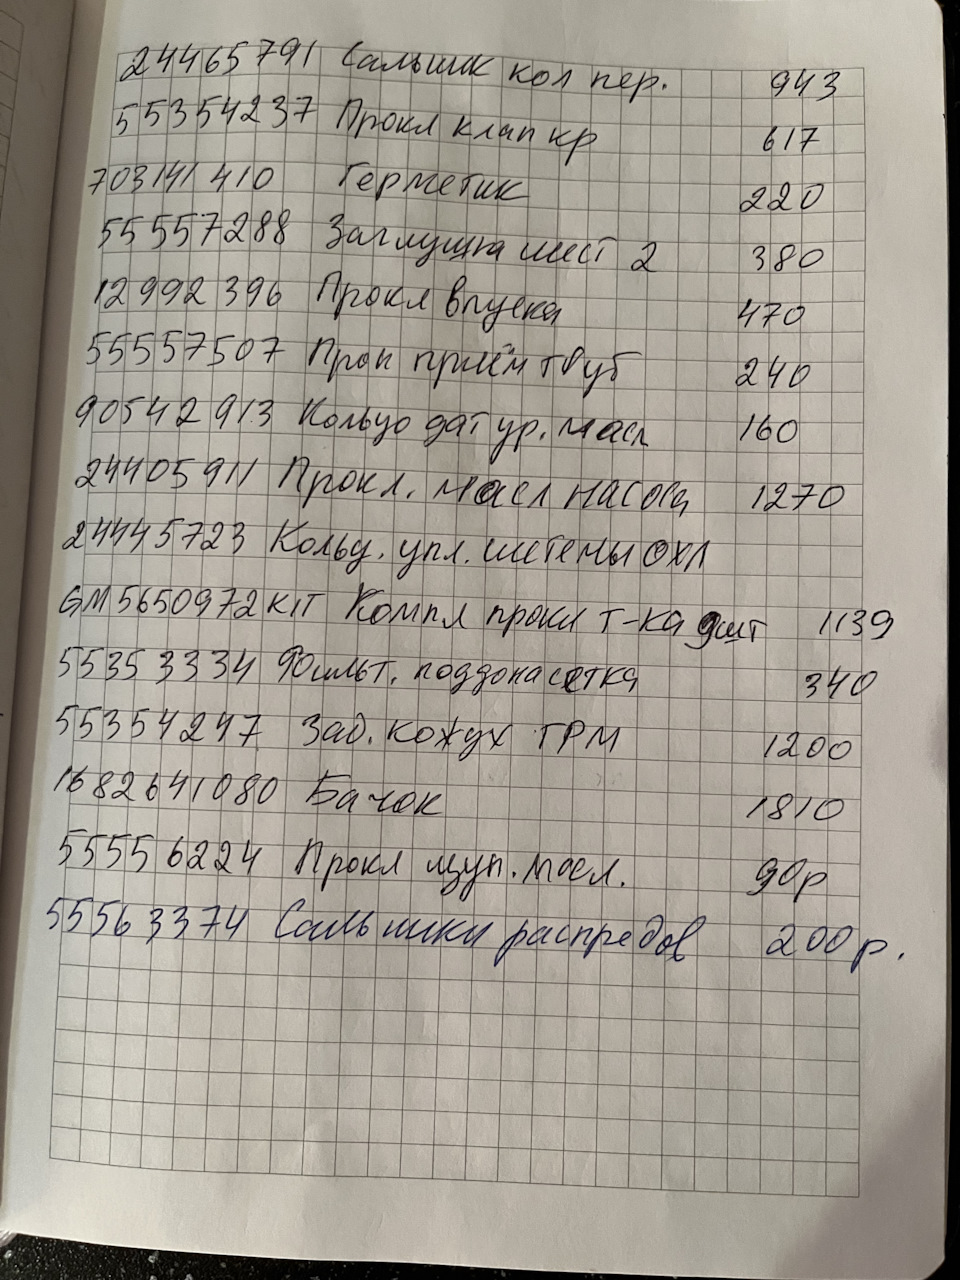 24465791 Сальник кол пер. 943
55354237 Прокл клап кр 617
703141410 Герметик 220
55557288 Заглушка шест 2 380
12992396 Прокл впуска 470
55557507 Прок приём труб 240
90542913 Кольцо дат ур. масл 160
24405911 Прокл. масл насоса 1270
24445723 Кольц. упл. системы охл
GM5650972KIT Компл прокл т-ка 9шт 1139
55353334 Фильт. поддона сетка 340
55354247 Зад. кожух ГРМ 1200
1682641080 Бачок 1810
55556224 Прокл щуп. масл. 90р
55563374 Сальники распредов 200р.